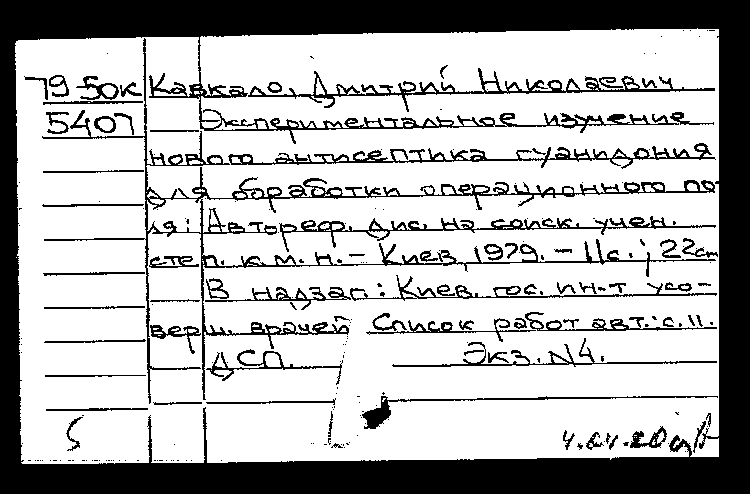 79-50к Кавкало, Дмитрий Николаевич.
5407 Экспериментальное изучение
нового антисептика гуанидония
для боработки операционного по-
ля: Автореф. дис. на соиск. учен.
степ. к.м.н. - Киев, 1979. - 11с.; 22см
В надзаг: Киев. гос. ин-т усо-
верш. врачей Список работ авт.: с. 11.
ДСП. Экз. N4.